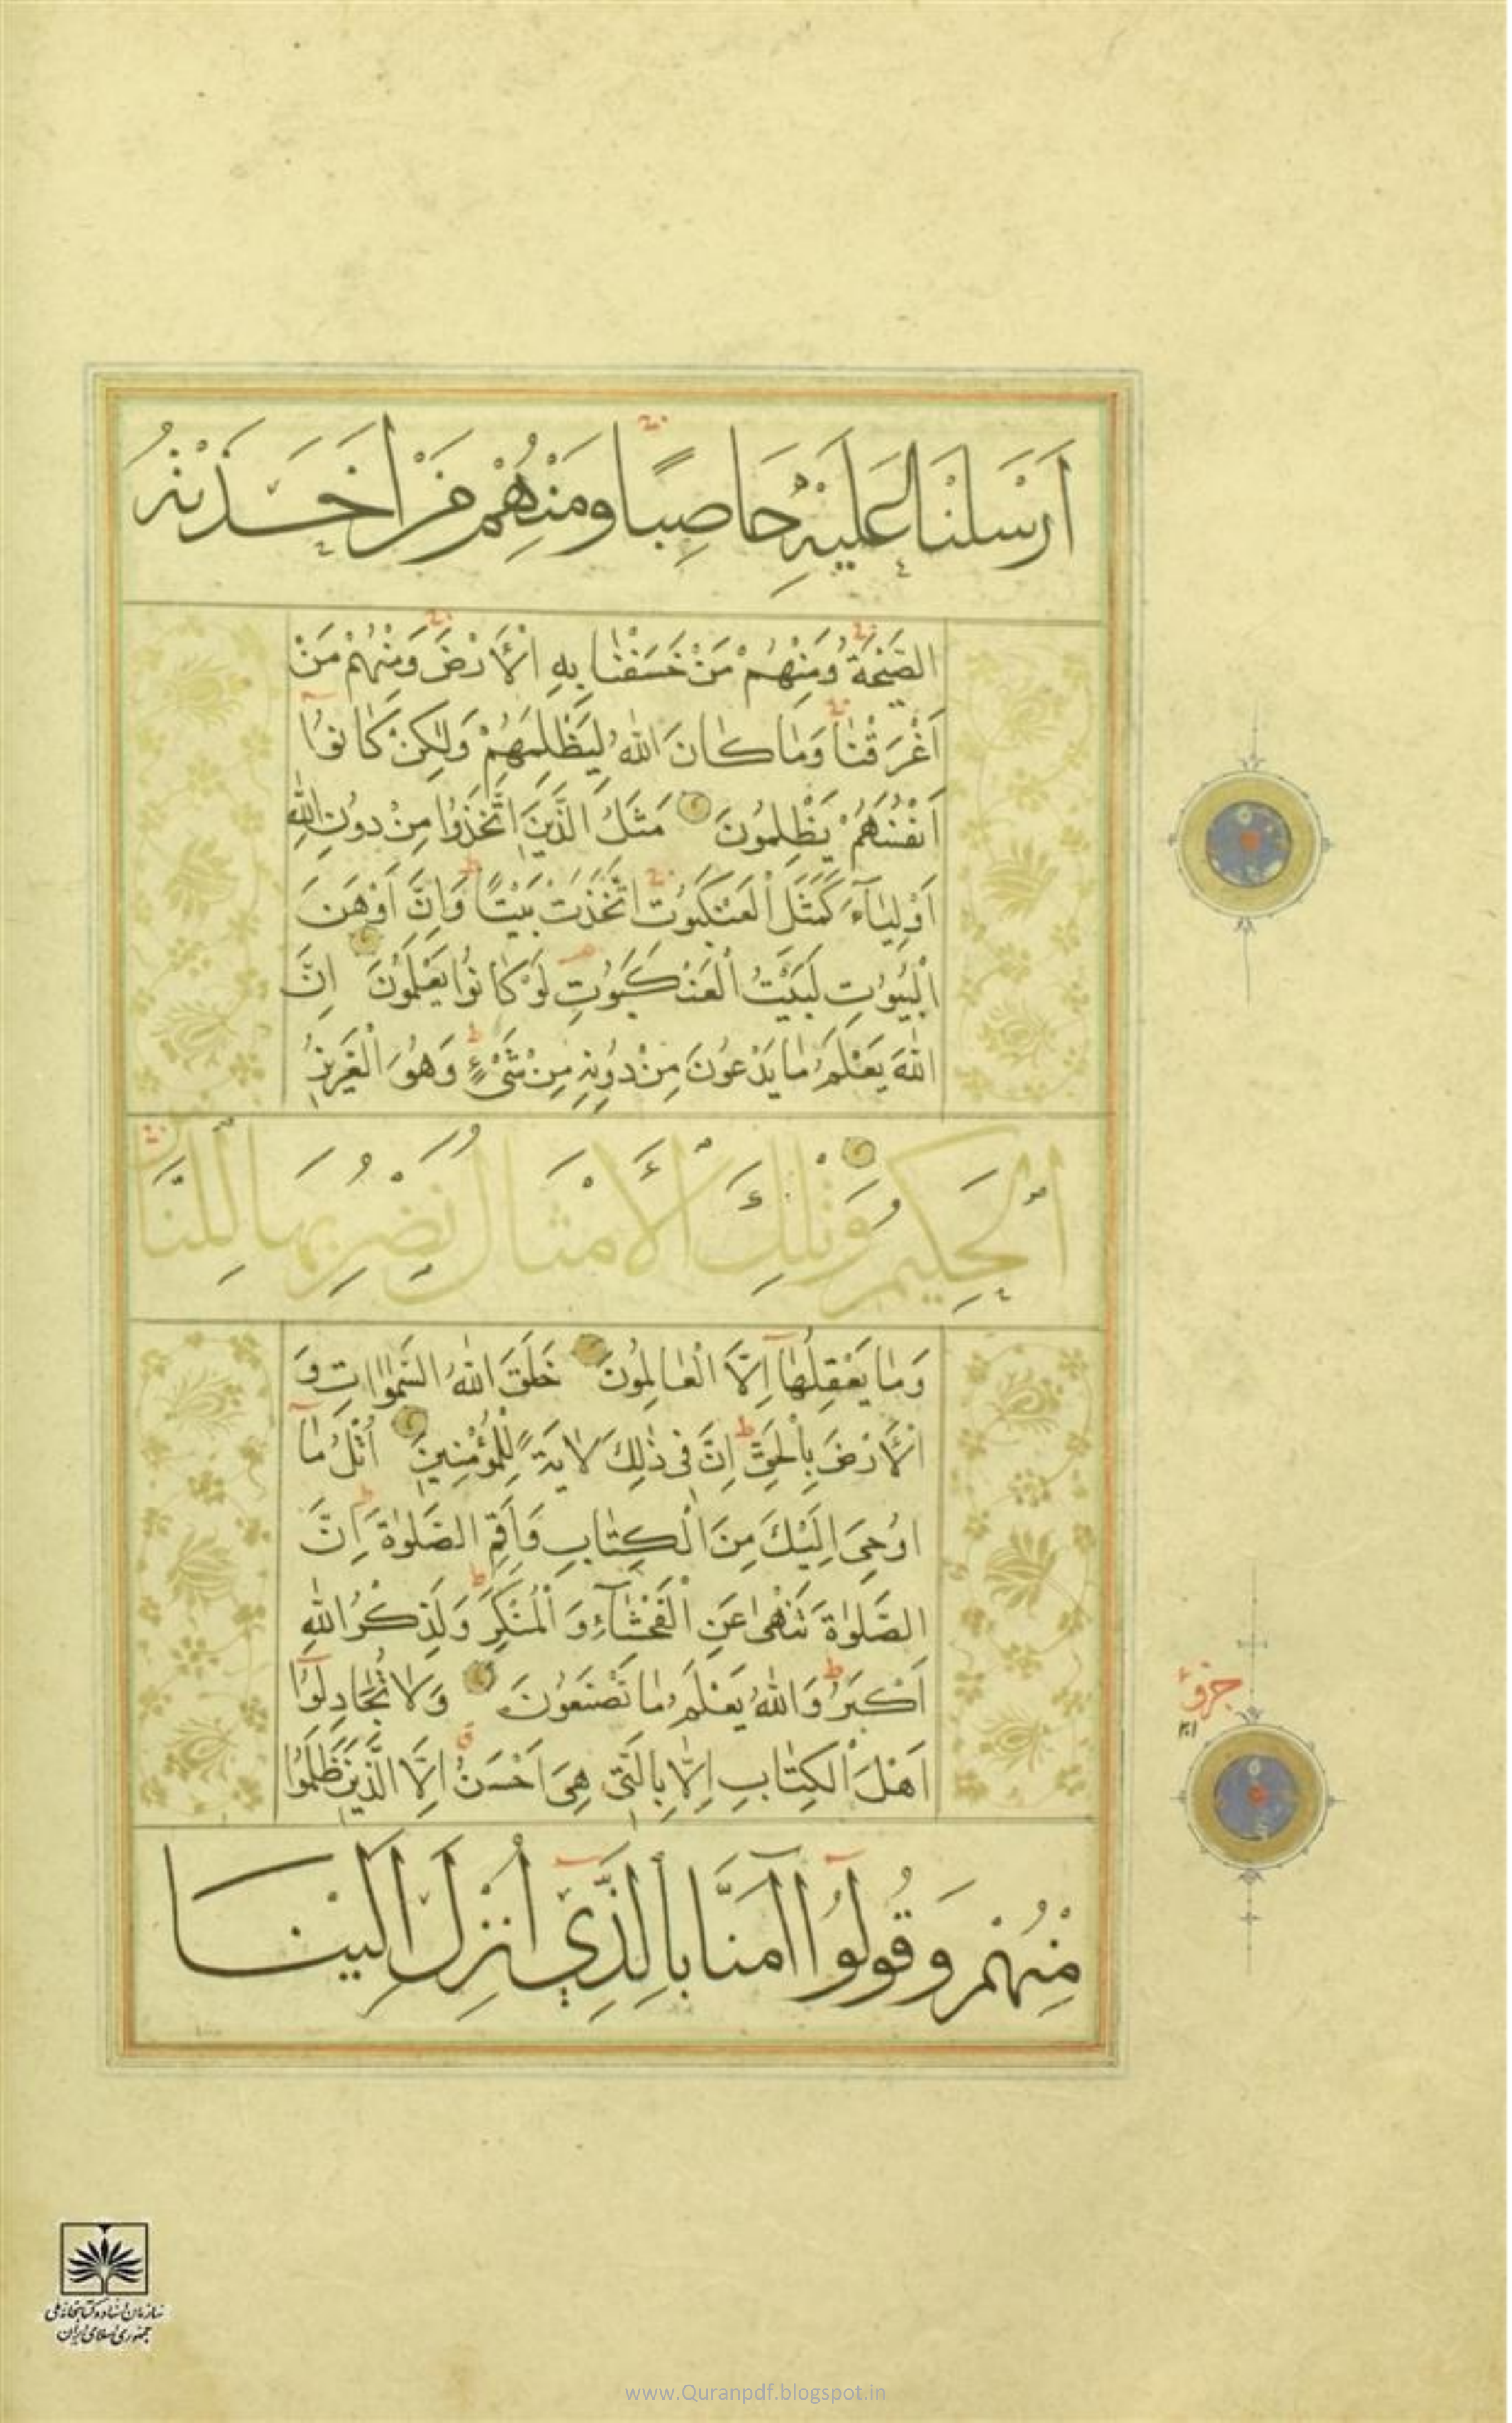 اَرْسَلْنَا عَلَيْهِ حَاصِبًا وَمِنْهُمْ مَنْ اَخَذَتْهُ
الصَّيْحَةُ وَمِنْهُمْ مَنْ خَسَفْنَا بِهِ الْاَرْضَ وَمِنْهُمْ مَنْ
اَغْرَقْنَا وَمَا كَانَ اللّٰهُ لِيَظْلِمَهُمْ وَلٰكِنْ كَانُوٓا
اَنْفُسَهُمْ يَظْلِمُونَ مَثَلُ الَّذِينَ اتَّخَذُوا مِنْ دُونِ اللّٰهِ
اَوْلِيَآءَ كَمَثَلِ الْعَنْكَبُوتِ اتَّخَذَتْ بَيْتًا وَاِنَّ اَوْهَنَ
الْبُيُوتِ لَبَيْتُ الْعَنْكَبُوتِ لَوْ كَانُوا يَعْلَمُونَ اِنَّ
اللّٰهَ يَعْلَمُ مَا يَدْعُونَ مِنْ دُونِهِ مِنْ شَىْءٍ وَهُوَ الْعَزِيزُ
الْحَكِيمُ وَتِلْكَ الْاَمْثَالُ نَضْرِبُهَا لِلنَّاسِ
وَمَا يَعْقِلُهَآ اِلَّا الْعَالِمُونَ خَلَقَ اللّٰهُ السَّمٰوَاتِ وَ
الْاَرْضَ بِالْحَقِّ اِنَّ فِى ذٰلِكَ لَاٰيَةً لِلْمُؤْمِنِينَ اُتْلُ مَآ
اُوحِىَ اِلَيْكَ مِنَ الْكِتَابِ وَاَقِمِ الصَّلٰوةَ اِنَّ
الصَّلٰوةَ تَنْهٰى عَنِ الْفَحْشَآءِ وَ الْمُنْكَرِ وَلَذِكْرُ اللّٰهِ
اَكْبَرُ وَاللّٰهُ يَعْلَمُ مَا تَصْنَعُونَ وَلَا تُجَادِلُوٓا
اَهْلَ الْكِتَابِ اِلَّا بِالَّتِى هِىَ اَحْسَنُ اِلَّا الَّذِينَ ظَلَمُوا
مِنْهُمْ وَقُولُوٓا اٰمَنَّا بِالَّذِىٓ اُنْزِلَ اِلَيْنَا
جزو
٢١
سازمان اسناد و کتابخانه ملی
جمهوری اسلامی ایران
www.Quranpdf.blogspot.in